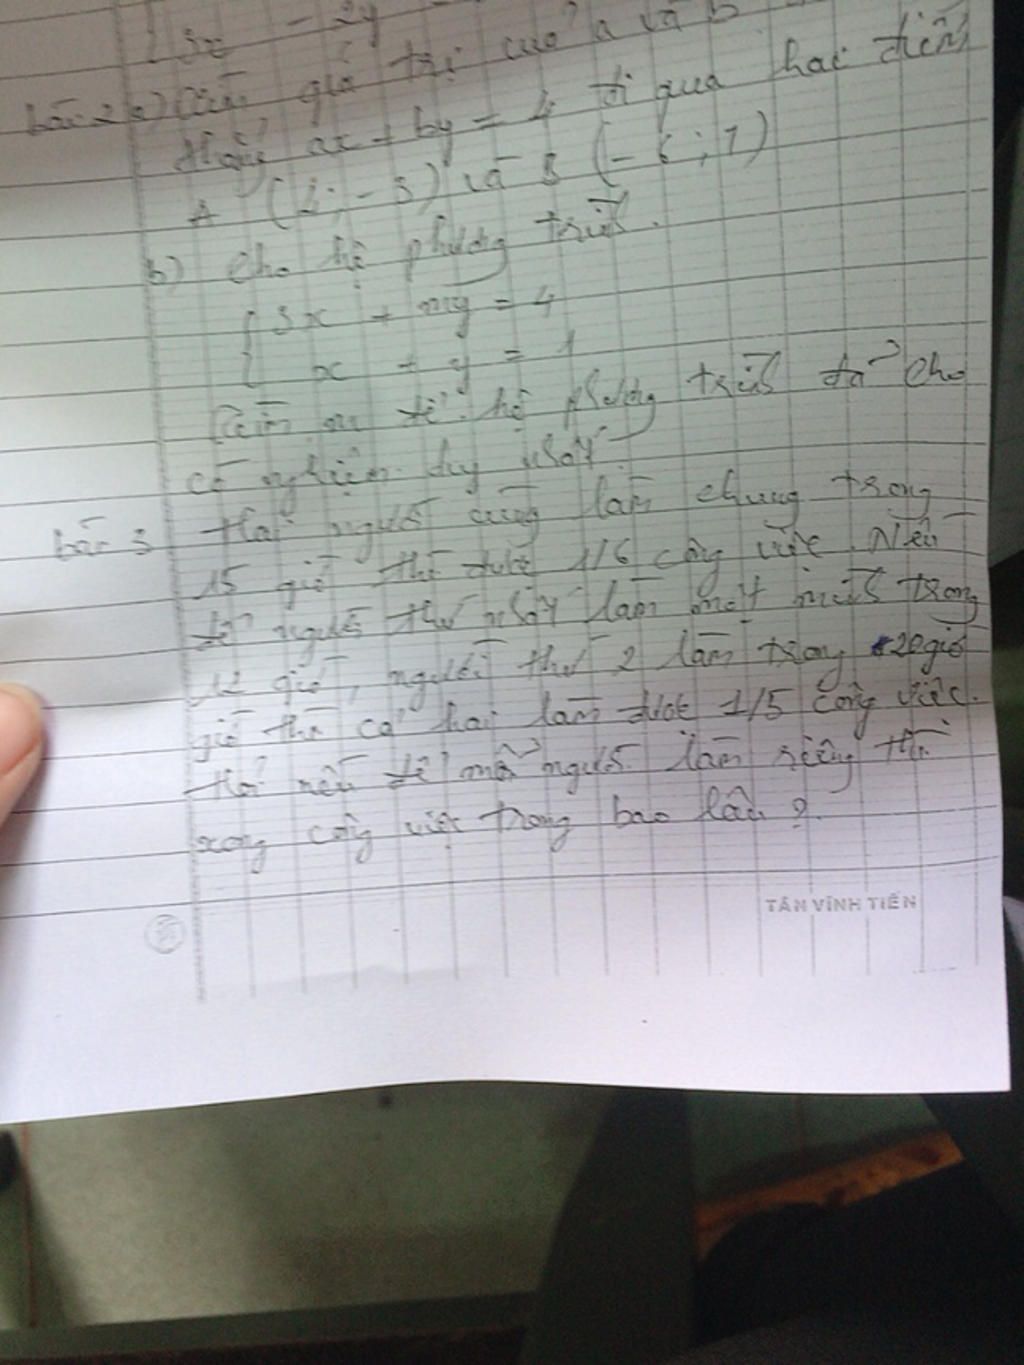 3x - 2y
bài 2 a) Tìm giá trị của a và b
thẳng ax + by = 4 đi qua hai điểm
A (4; -3) và B (-6; 7)
b) cho hệ phương trình.
3x + my = 4
x + y = 1
Tìm m để hệ phương trình đã cho
có nghiệm duy nhất
bài 3 Hai người cùng làm chung trong
15 giờ thì được 1/6 công việc. Nếu
để người thứ nhất làm một mình trong
12 giờ, người thứ 2 làm trong 20 giờ
giờ thì cả hai làm được 1/5 công việc.
Hỏi nếu để mỗi người làm riêng thì
xong công việc trong bao lâu ?
TÂN VĨNH TIẾN